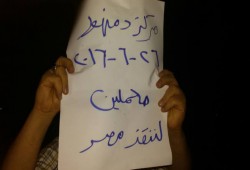 مركز دمنهور
٢٠١٦-٦-٢٦
مكملين
لننقذ مصر